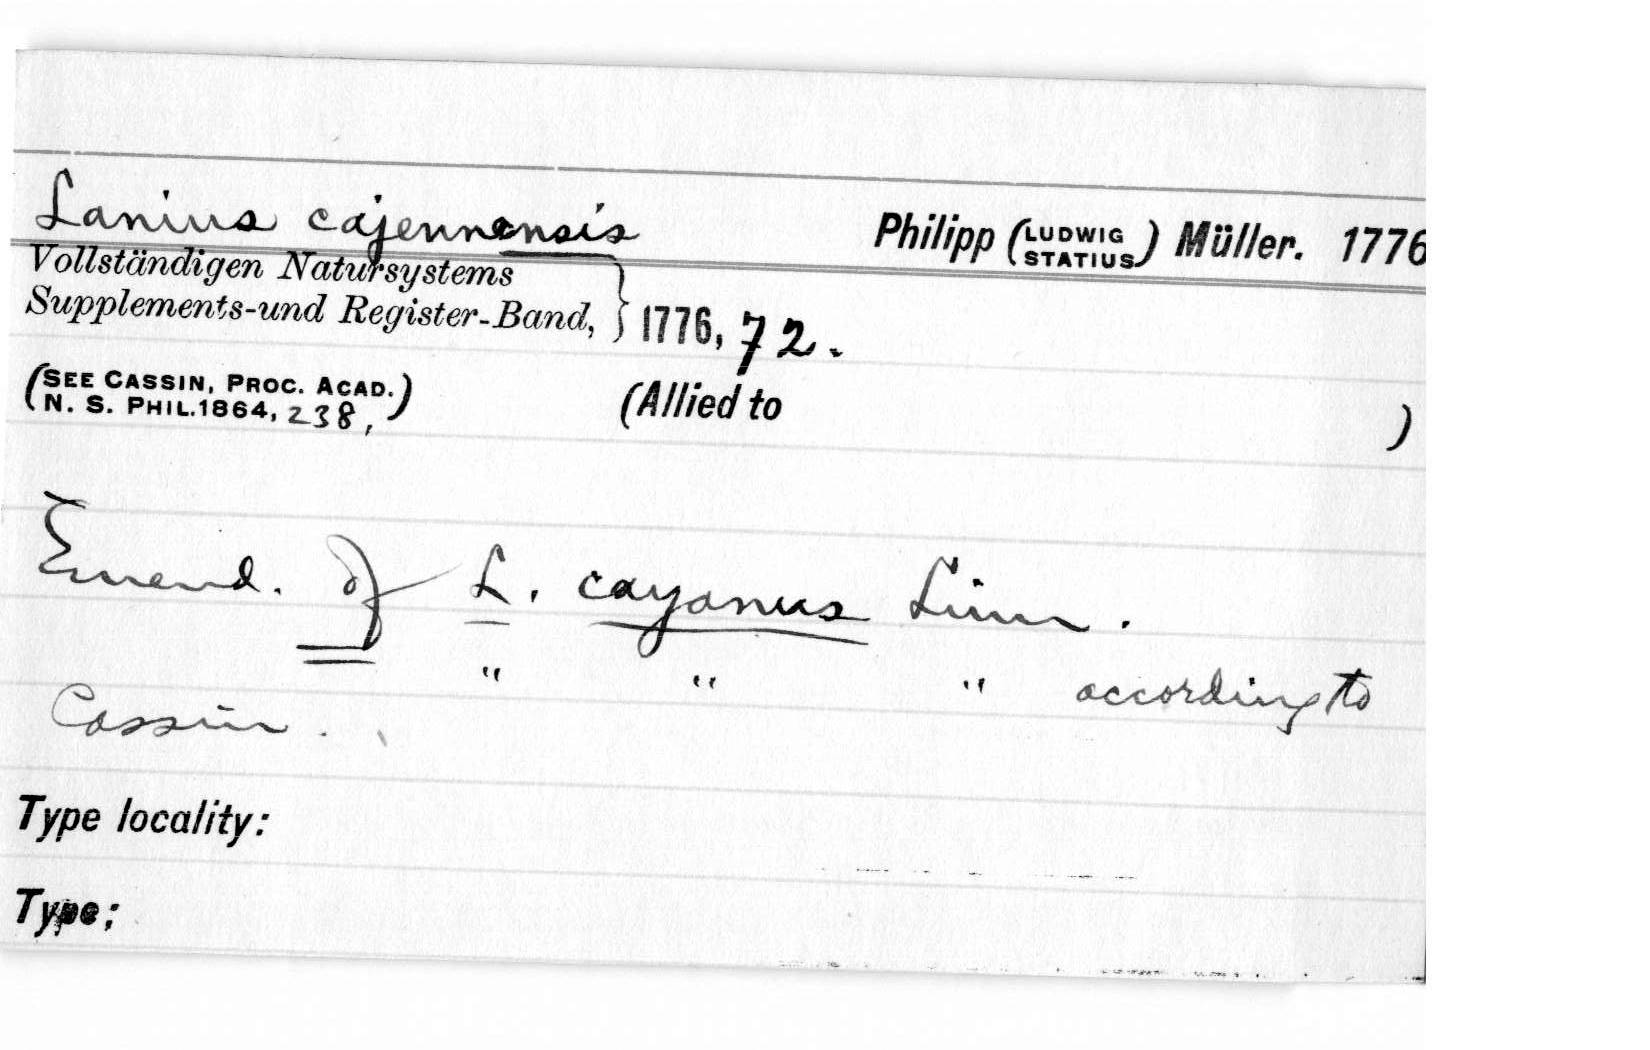 Lanius cajennensis Philipp (LUDWIG STATIUS) Müller. 1776
Vollständigen Natursystems
Supplements-und Register-Band, } 1776, 72.
(SEE CASSIN, PROC. ACAD.
N. S. PHIL. 1864, 238,) (Allied to )
Emend. of L. cayanus Linn.
" " " according to
Cassin.
Type locality:
Type: